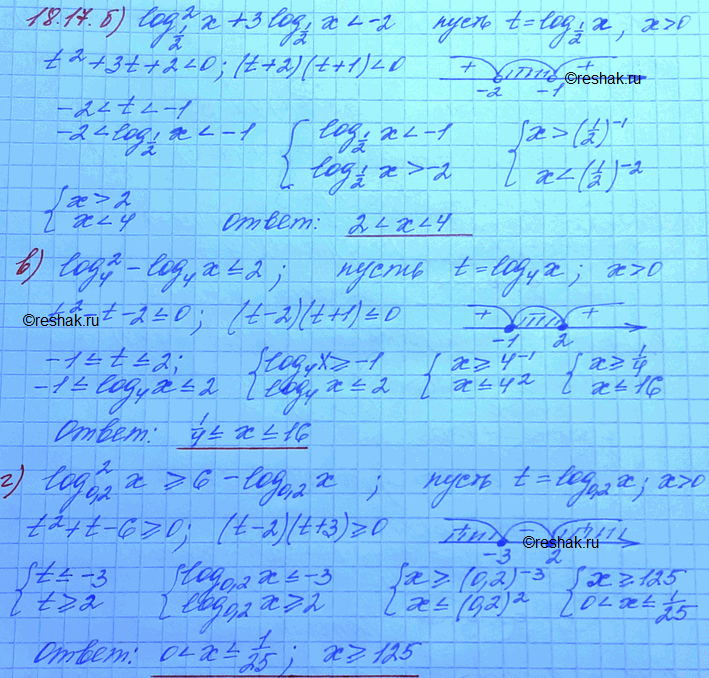 18.17. б) log²_{1/2} x + 3 log_{1/2} x < -2   пусть t = log_{1/2} x, x > 0
t² + 3t + 2 < 0; (t+2)(t+1) < 0   + -2 -1 +
©reshak.ru
-2 < t < -1
-2 < log_{1/2} x < -1   { log_{1/2} x < -1   { x > (1/2)^{-1}
log_{1/2} x > -2   x < (1/2)^{-2}
{ x > 2
x < 4   ответ: 2 < x < 4
в) log₄² - log₄ x ≤ 2;   пусть t = log₄ x; x > 0
t² - t - 2 ≤ 0; (t-2)(t+1) ≤ 0   + -1 2 +
©reshak.ru
-1 ≤ t ≤ 2;   { log₄ x ≥ -1   { x ≥ 4^{-1}   { x ≥ 1/4
-1 ≤ log₄ x ≤ 2   log₄ x ≤ 2   x ≤ 4²   x ≤ 16
Ответ: 1/4 ≤ x ≤ 16
г) log²_{0,2} x ≥ 6 - log_{0,2} x;   пусть t = log_{0,2} x; x > 0
t² + t - 6 ≥ 0; (t-2)(t+3) ≥ 0   + -3 - 2 +
©reshak.ru
{ t ≤ -3   { log_{0,2} x ≤ -3   { x ≥ (0,2)^{-3}   { x ≥ 125
t ≥ 2   log_{0,2} x ≥ 2   x ≤ (0,2)²   0 < x ≤ 1/25
Ответ: 0 < x ≤ 1/25; x ≥ 125